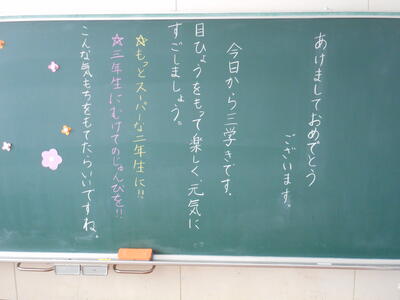 あけましておめでとう
ございます。
今日から三学きです。
目ひょうをもって楽しく、元気に
すごしましょう。
☆もっとスーパーな二年生に!!
☆三年生にむけてのじゅんびを!!
こんな気もちをもてたらいいですね。